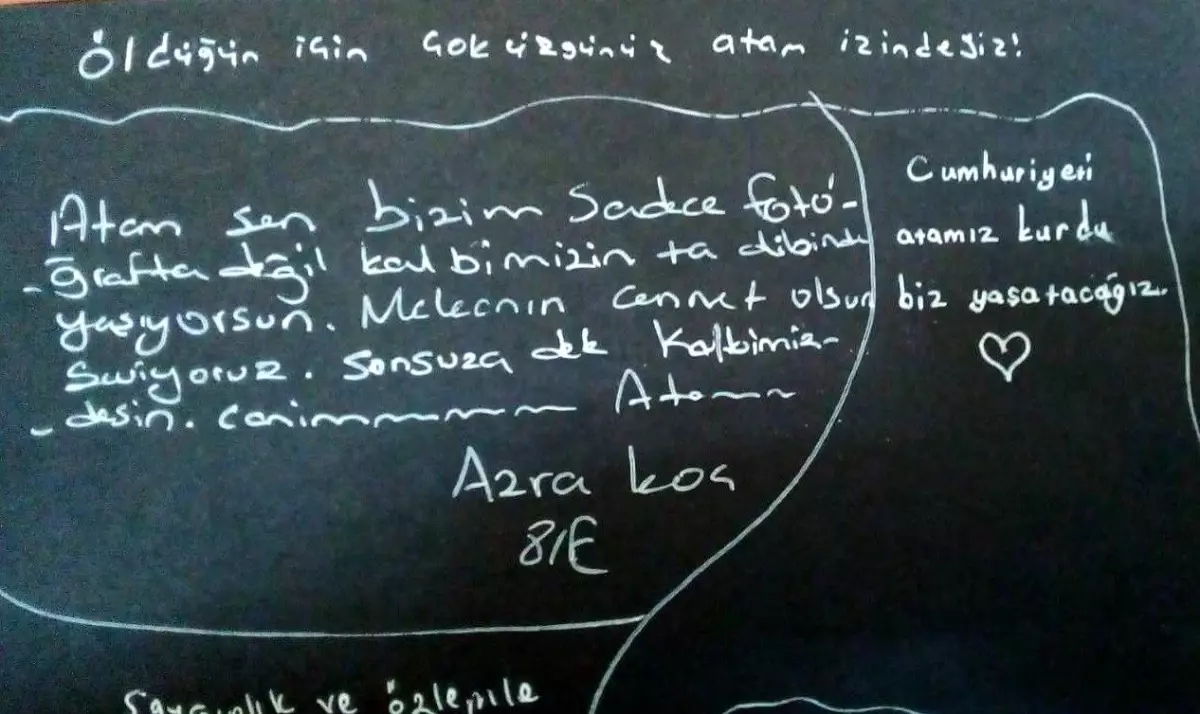 Öldüğün için çok üzgünüz atam izindeyiz!
Atam sen bizim Sadece foto-
-ğrafta değil kalbimizin ta dibinde
yaşıyorsun. Mekanın cennet olsun
Seviyoruz. Sonsuza dek Kalbimiz-
-desin. canımmmmm Atamm
Azra koç
8/E
Cumhuriyeti
atamız kurdu
biz yaşatacağız.
♡
Saygınlık ve özlemle